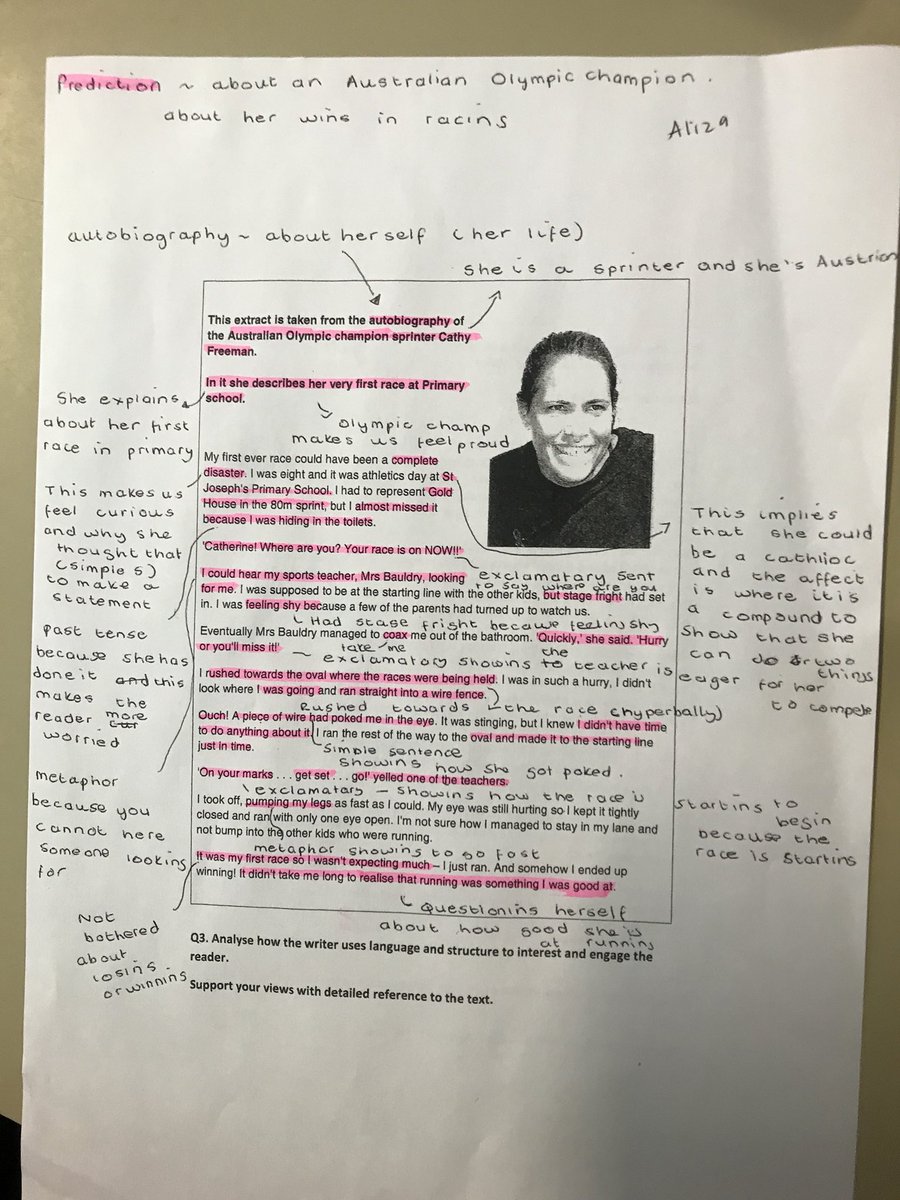 Prediction ~ about an Australian Olympic champion.
about her wins in racing
Aliza
autobiography ~ about herself (her life)
she is a sprinter and she's Austrian
This extract is taken from the autobiography of
the Australian Olympic champion sprinter Cathy
Freeman.
In it she describes her very first race at Primary
school.
She explains
about her first
race in primary
Olympic champ
makes us feel proud
My first ever race could have been a complete
disaster. I was eight and it was athletics day at St
Joseph's Primary School. I had to represent Gold
House in the 80m sprint, but I almost missed it
because I was hiding in the toilets.
This makes us
feel curious
and why she
thought that
(simple s)
to make a
statement
This implies
that she could
be a cathlioc
and the affect
is where it is
a compound to
show that she
can do two
things
'Catherine! Where are you? Your race is on NOW!!'
exclamatory sent
to say where are you
I could hear my sports teacher, Mrs Bauldry, looking
for me. I was supposed to be at the starting line with the other kids, but stage fright had set
in. I was feeling shy because a few of the parents had turned up to watch us.
Had stage fright because feelin shy
Eventually Mrs Bauldry managed to coax me out of the bathroom. 'Quickly,' she said. 'Hurry
or you'll miss it!'
take me
~ exclamatory showing to the teacher is
eager for her
to compete
Past tense
because she has
done it and this
makes the
reader more
worried
I rushed towards the oval where the races were being held. I was in such a hurry, I didn't
look where I was going and ran straight into a wire fence.
Rushed towards the race (hyperbally)
Ouch! A piece of wire had poked me in the eye. It was stinging, but I knew I didn't have time
to do anything about it. I ran the rest of the way to the oval and made it to the starting line
just in time.
simple sentence
showing how she got poked.
'On your marks . . . get set . . . go!' yelled one of the teachers.
exclamatory - showing how the race is
starting to
begin
because the
race is starting
metaphor
because you
cannot here
someone looking
for
I took off, pumping my legs as fast as I could. My eye was still hurting so I kept it tightly
closed and ran with only one eye open. I'm not sure how I managed to stay in my lane and
not bump into the other kids who were running.
metaphor showing to go fast
It was my first race so I wasn't expecting much – I just ran. And somehow I ended up
winning! It didn't take me long to realise that running was something I was good at.
Questioning herself
about how good she is
at running
Not
bothered
about
losing
or winning
Q3. Analyse how the writer uses language and structure to interest and engage the
reader.
Support your views with detailed reference to the text.